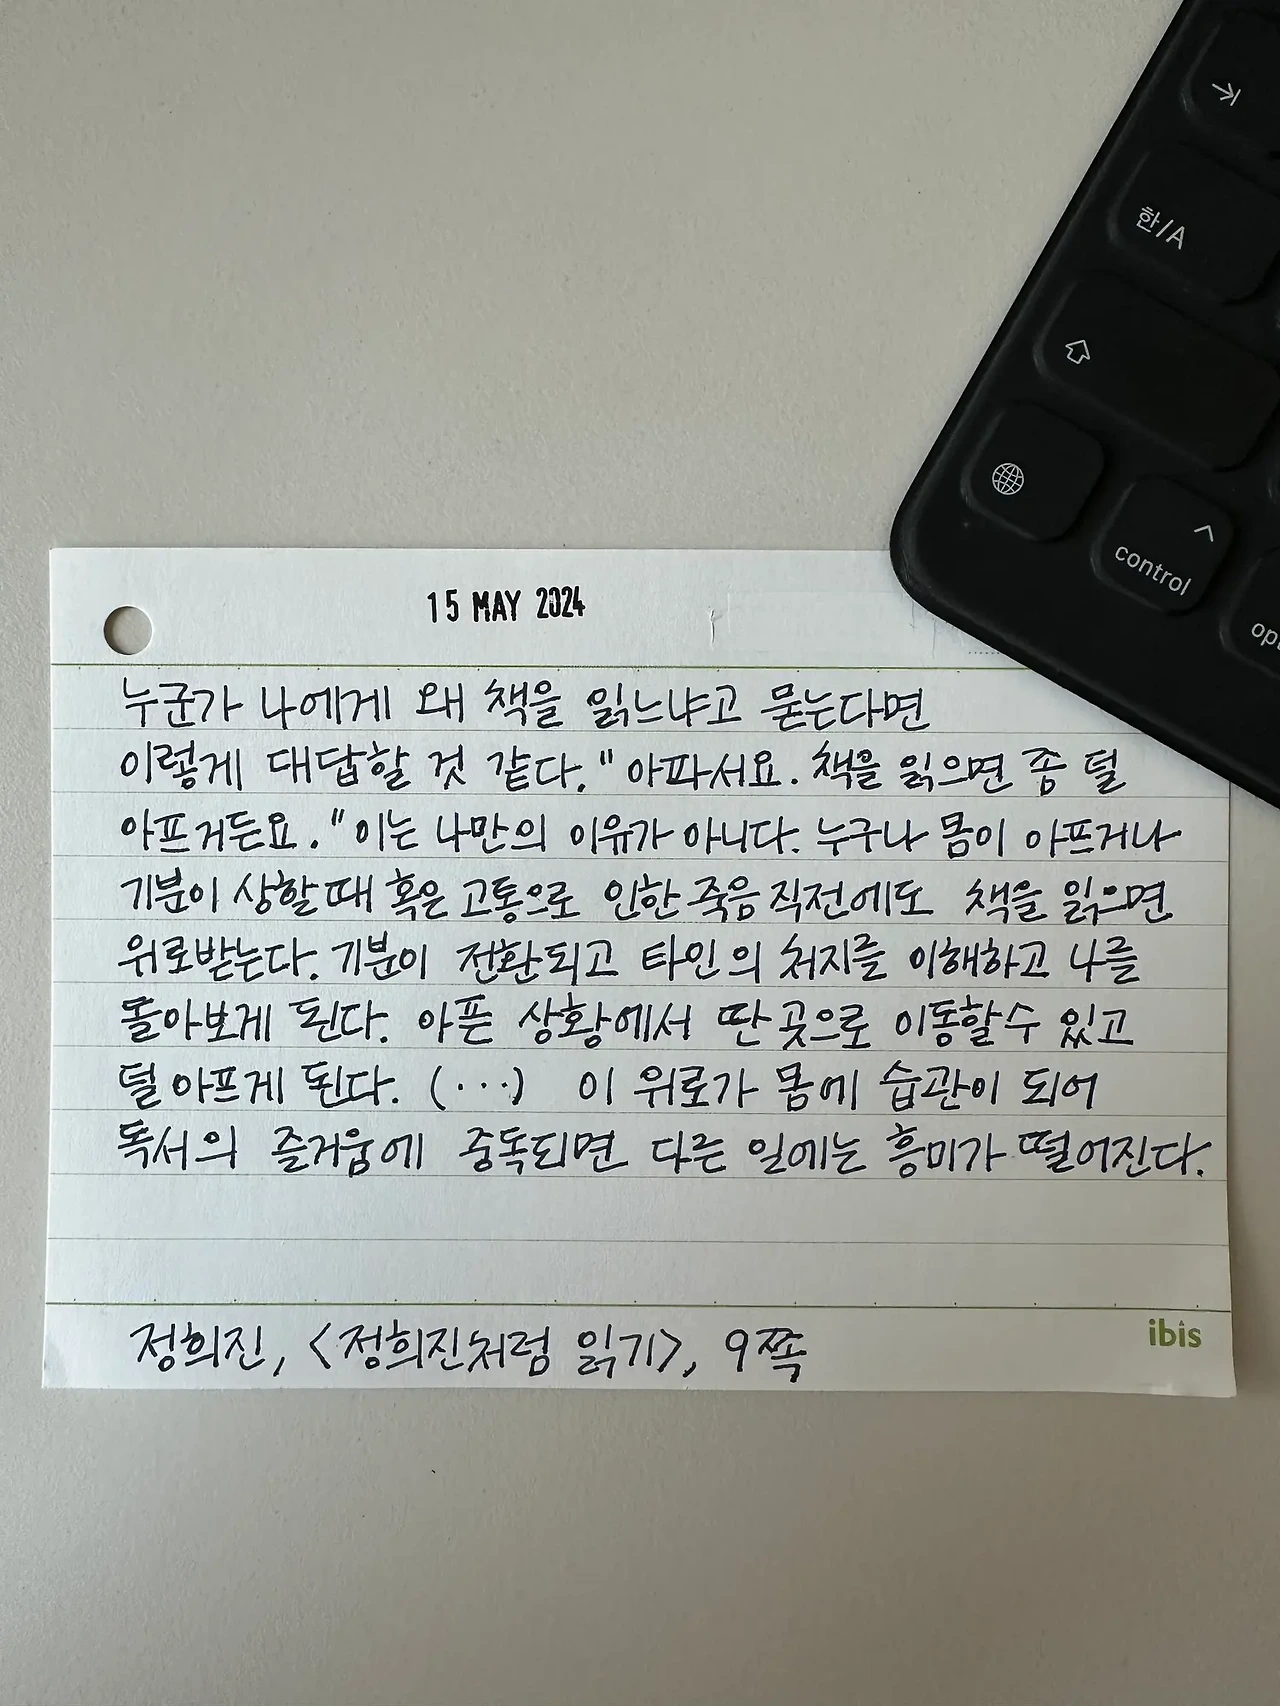 한/A
control
15 MAY 2024
누군가 나에게 왜 책을 읽느냐고 묻는다면
이렇게 대답할 것 같다. "아파서요. 책을 읽으면 좀 덜
아프거든요." 이는 나만의 이유가 아니다. 누구나 몸이 아프거나
기분이 상할 때 혹은 고통으로 인한 죽음 직전에도 책을 읽으면
위로받는다. 기분이 전환되고 타인의 처지를 이해하고 나를
돌아보게 된다. 아픈 상황에서 딴 곳으로 이동할 수 있고
덜 아프게 된다. (···) 이 위로가 몸에 습관이 되어
독서의 즐거움에 중독되면 다른 일에는 흥미가 떨어진다.
정희진, <정희진처럼 읽기>, 9쪽
ibis